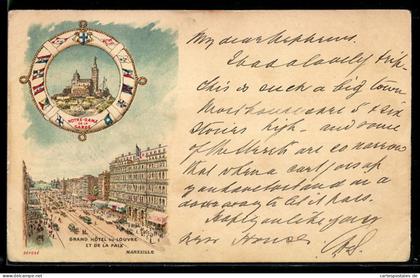 NOTRE-DAME
DE LA
GARDE
GRAND HÔTEL DU LOUVRE
ET DE LA PAIX
MARSEILLE
DÉPOSÉ
My dear
I had a lovely trip.
This is such a big town
Most houses are 5 & six
stories high - and some
of the streets are so narrow
that when a cart goes up
you have to stand on a
doorway to let it pass.
I hope you like your
new House